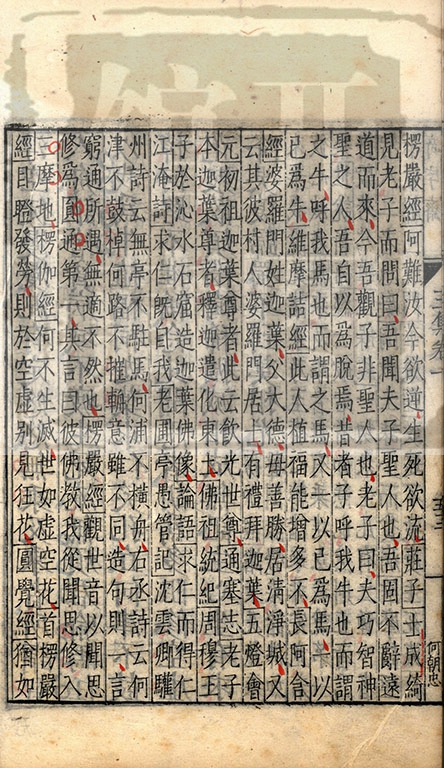 楞嚴經阿難汝今欲逆生死欲流莊子士成綺
見老子而問曰吾聞夫子聖人也吾固不辭遠
道而來今吾觀子非聖人也老子曰夫巧智神
聖之人吾自以為脫焉昔者子呼我牛也而謂
之牛呼我馬也而謂之馬又 以己為馬 以
己為牛維摩詰經此人植福能增多不長阿含
經婆羅門姓迦葉父大德母善勝居清淨城又
云其彼村人婆羅門居士有禮拜迦葉五燈會
元初祖迦葉尊者此云飲光世尊通塞志老子
本迦葉尊者釋迦遣化東土佛祖統紀周穆王
子於沁水石窟造迦葉佛像論語求仁而得仁
江淹詩求仁既自我老圃亭愚管記沈雲卿驩
州詩云無亭不駐馬何浦不橫舟右丞詩云何
津不鼓棹何路不摧輈意雖不同造句則 言
窮通所遇無適不然也楞嚴經觀世音以聞思
修為圓通第一其言曰彼佛教我從聞思修入
三摩地楞伽經何不生滅世如虛空花首楞嚴
經目瞪發勞則於空虛別見狂花圓覺經猶如
何朝忠